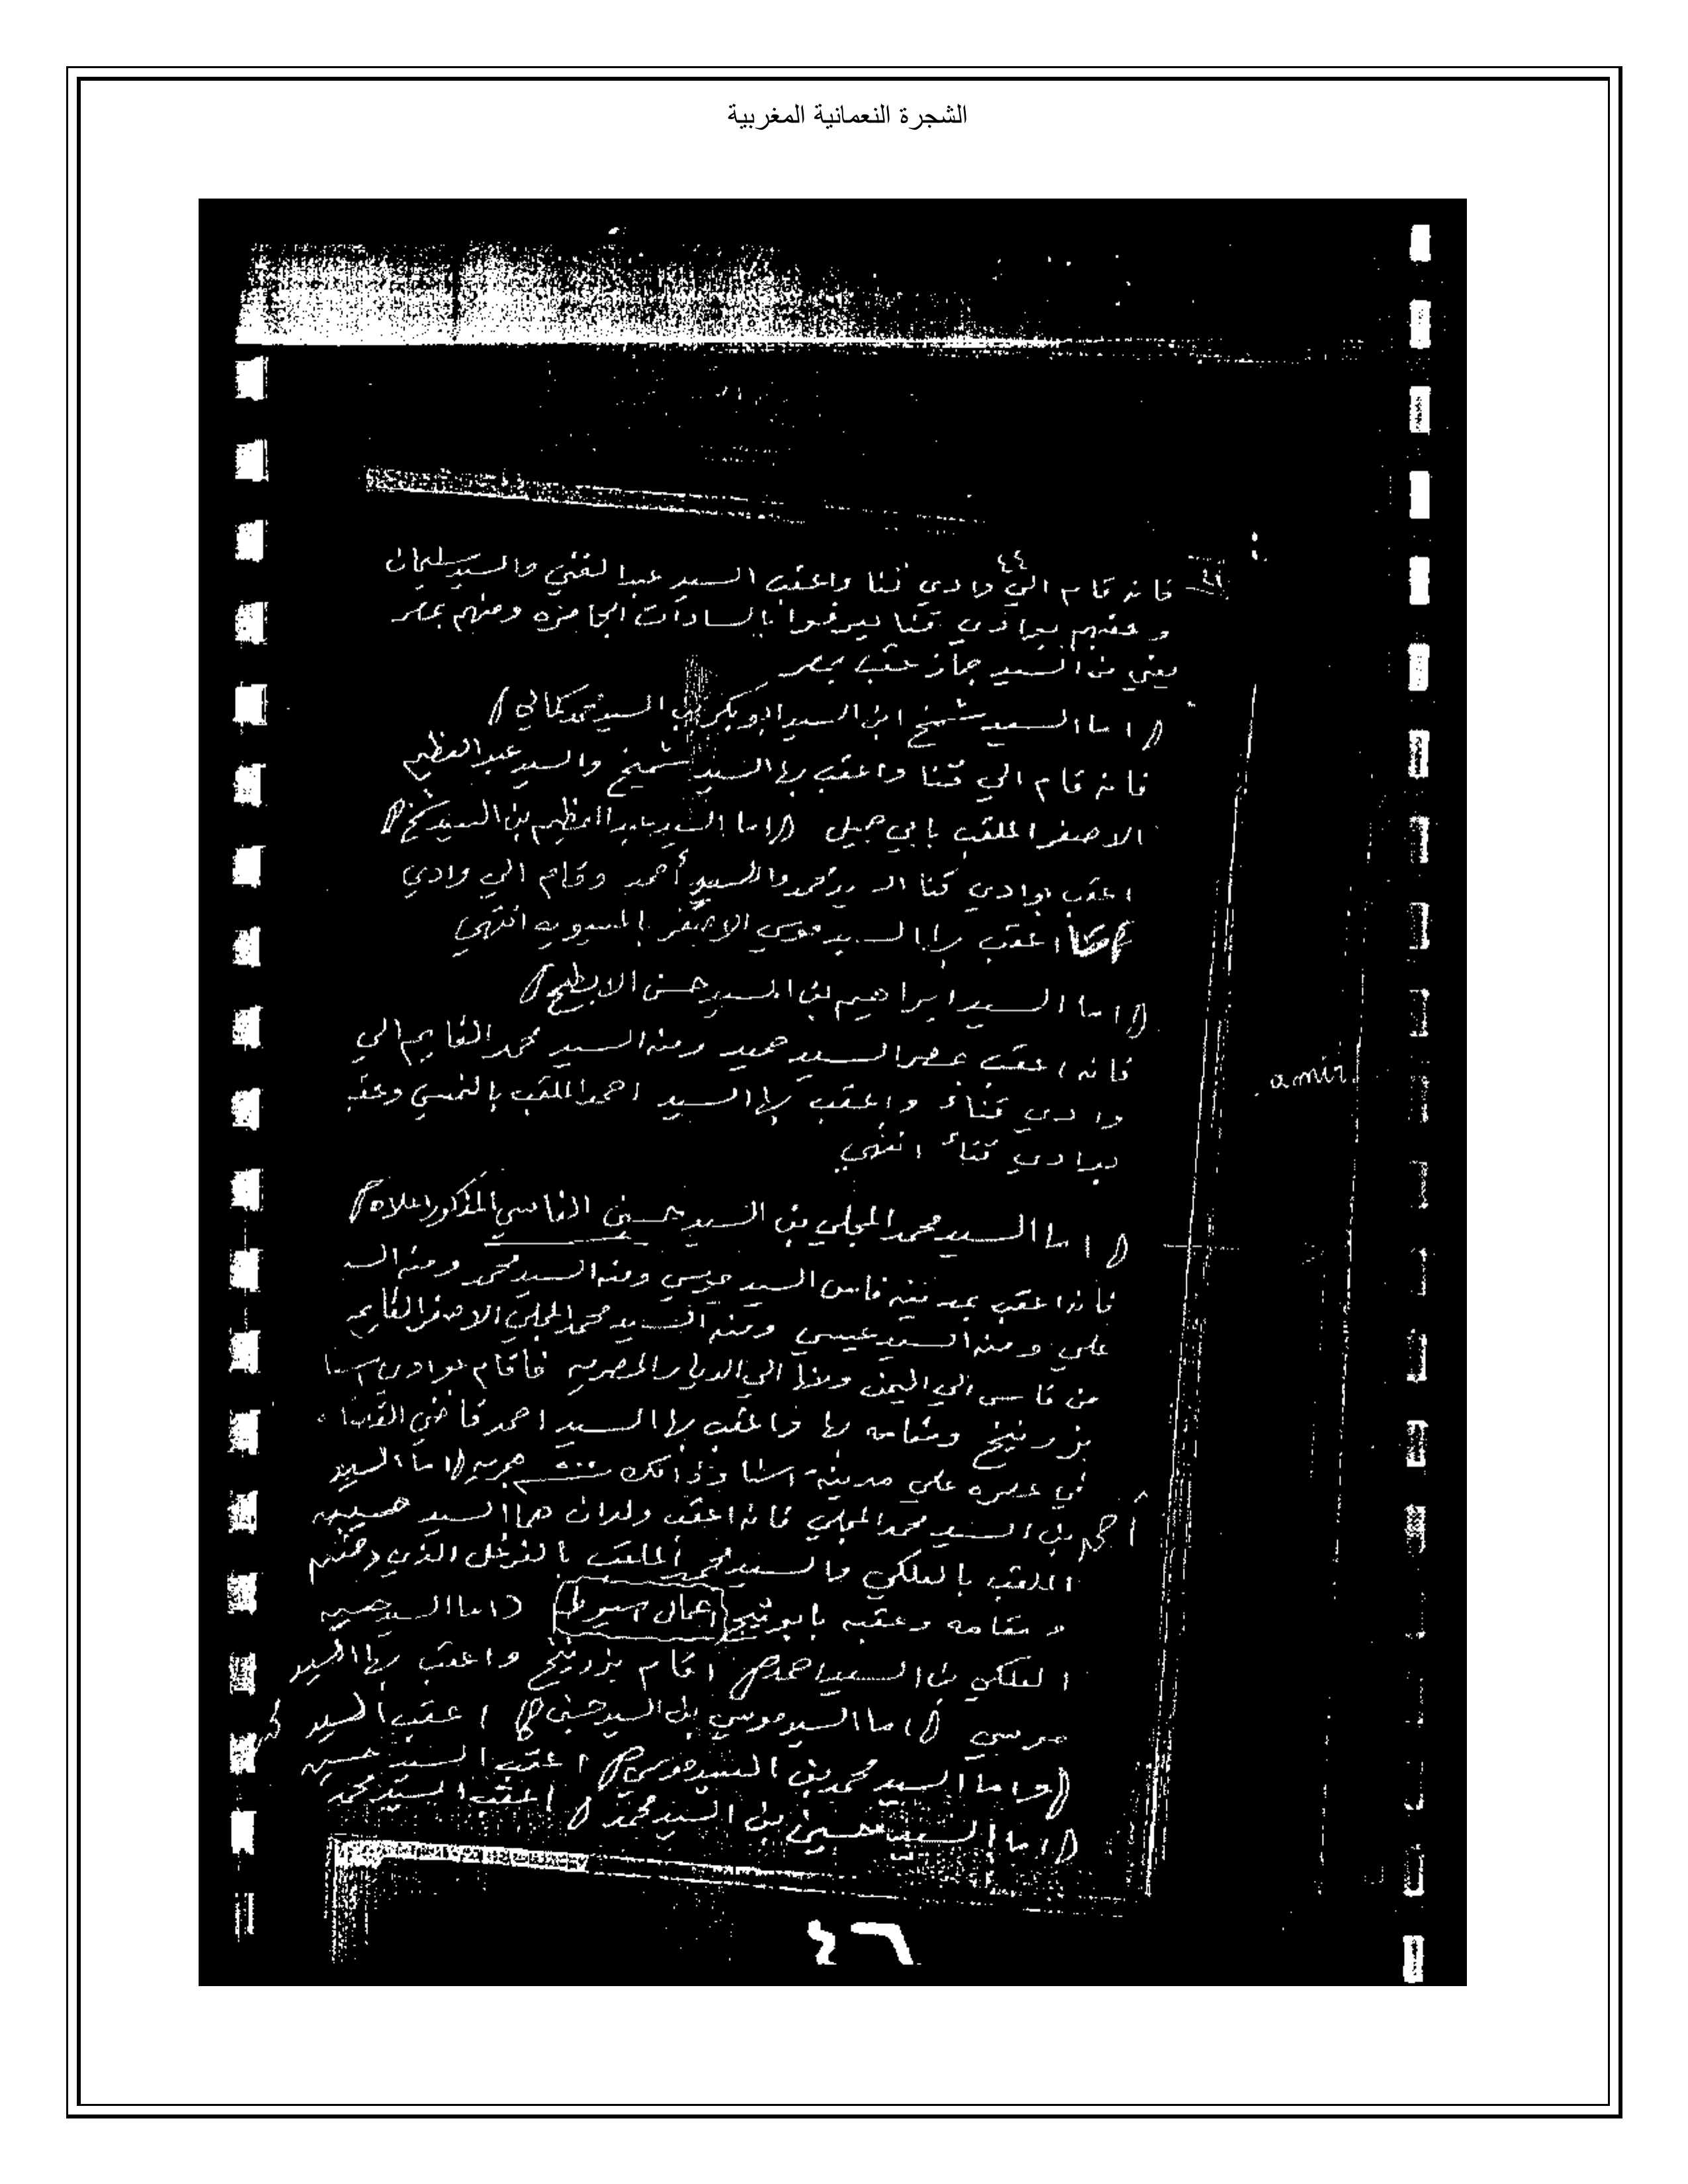 الشجرة النعمانية المغربية
٤٤
فانه قام الي وادي قنا واعقب السيد عبد الغني والسيد سليمان
وعقبهم بوادي قنا ليعرفوا بالسادات الجامزه ومنهم بمصر
يعني من السيد جماز عقب بمصر
(اما السيد شميخ ابن السيد ابو بكر بن السيد محمد كمالي)
فانه قام الي قنا واعقب بها السيد شميخ والسيد عبد العظيم
الاصغر الملقب بابي جميل (اما السيد عبد العظيم بن السيد
اعقب بوادي قنا السيد محمد والسيد أحمد وقام الي وادي
اعقب بها السيد موسي الاصغر انتهي
(اما السيد ابراهيم بن السيد حسن الابطح)
فانه اعقب بمصر السيد حميد ومنه السيد محمد القايم الي
وادي قناء واعقب بها السيد احمد الملقب بالنمسي وعقبه
بوادي قناء انتهي
(اما السيد محمد المجلي بن السيد حسين الفاسي المذكور اعلاه)
فانه اعقب بمدينة فاس السيد موسي ومنه السيد محمد ومنه السيد
علي ومنه السيد عيسي ومنه السيد محمد المجلي الاصغر القايم
من فاس الي اليمن ومنها الي الديار المصريه فاقام بوادي اسنا
بزرنيخ ومقامه بها واعقب بها السيد احمد قاضي القضاء
في عصره علي مدينة اسنا وذالك (اما السيد
أحمد بن السيد محمد المجلي فانه اعقب ولدان هما السيد حسين
الملقب بالعلكي والسيد محمد الملقب بالفرغل الذي
ومقامه وعقبه بابوتيج اعمال اسيوط (اما السيد حسين
العلكي بن السيد احمد) اقام بزرنيخ واعقب بها السيد
موسي (اما السيد موسي بن السيد حسين) اعقب السيد محمد
(واما السيد محمد بن السيد موسي) اعقب السيد حسين
(اما السيد حسين بن السيد محمد) اعقب السيد محمد
amir
٤٦